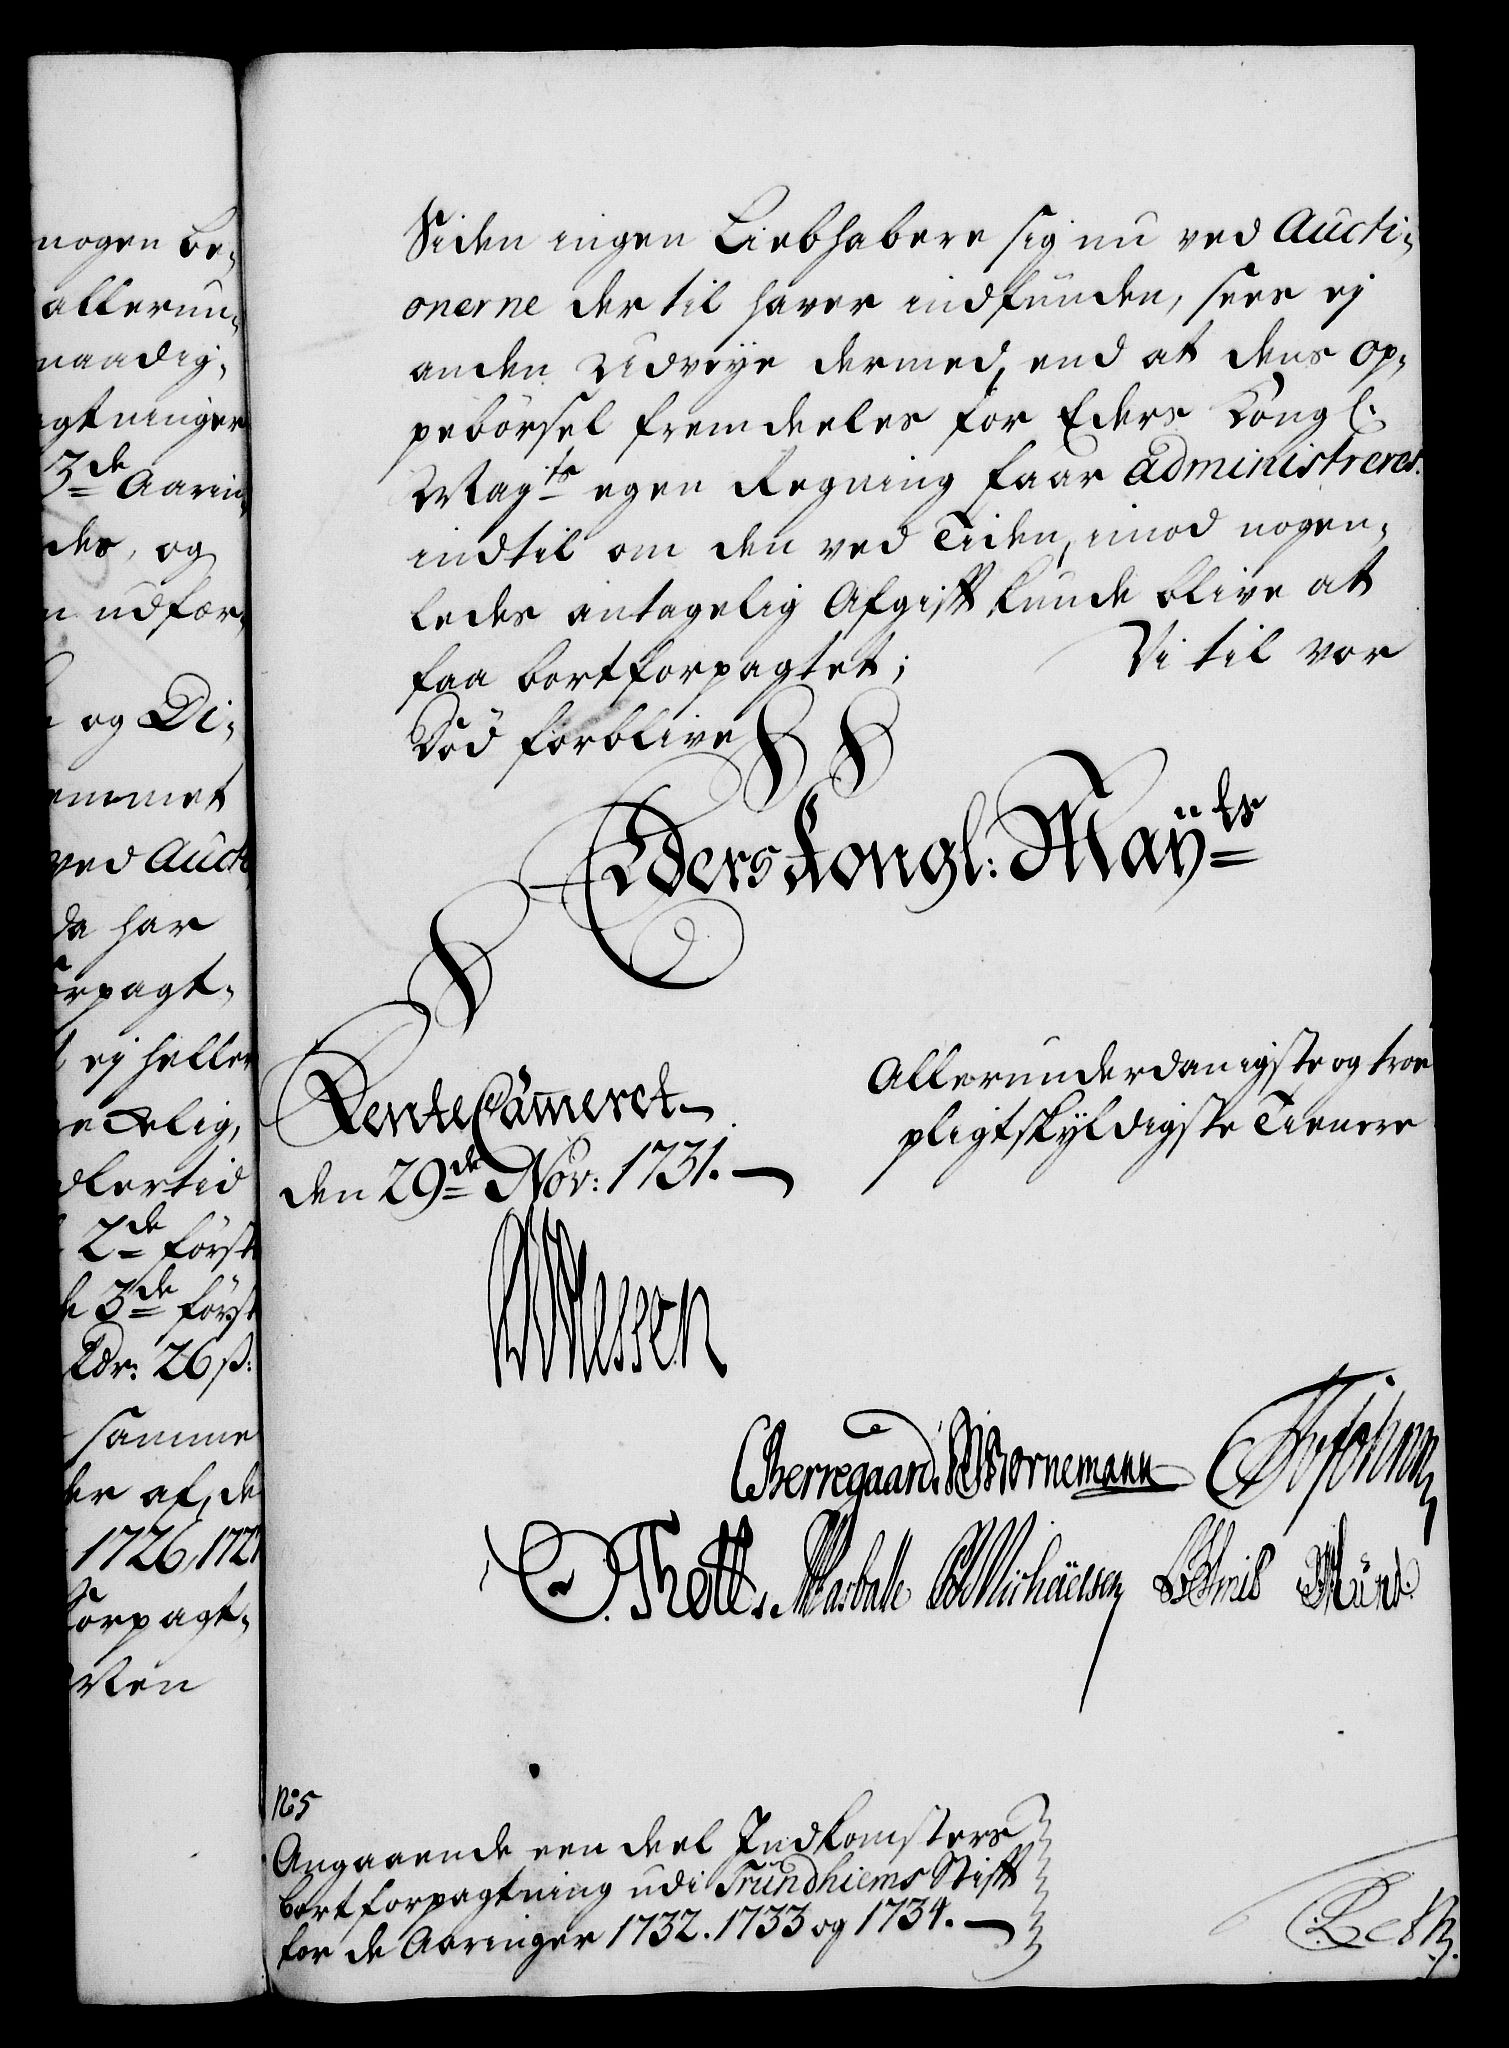 nogen be-
allerun-
naadig-
gtninger
3de Aarin-
des, og
n udfor-
og Di-
emmet
ved Aucti
da har
orpagt-
ej heller
dlertid
2de först
de 3de först
Rdr: 26 ß:
samme
der af, de
1726, 1727
forpagt-
Siden ingen Liebhabere sig nu ved Aucti-
onerne der til haver indfunden, sees ej
anden Udveye dermed, end at dens op-
pebörsel fremdeeles for Eders Kongl:
Mayts egen Regning faar administreres.
indtil om den ved Tiden, imod nogen-
ledes antagelig Afgifft kunde blive at
faa bortforpagtet;
Vi til vor
Död forblive
Eders Kongl: Mayts
RenteCammeret
den 29de Nov: 1731.
Allerunderdanigste og troe
pligtskyldigste Tienere
CAvPlessen
CBerregaard. Bornemann
O. Thott. Masbatt Michaelsen
No 5
Angaaende een deel Indkomsters
bortforpagtning udi Trundhiems Stifft
for de Aaringer 1732. 1733 og 1734.